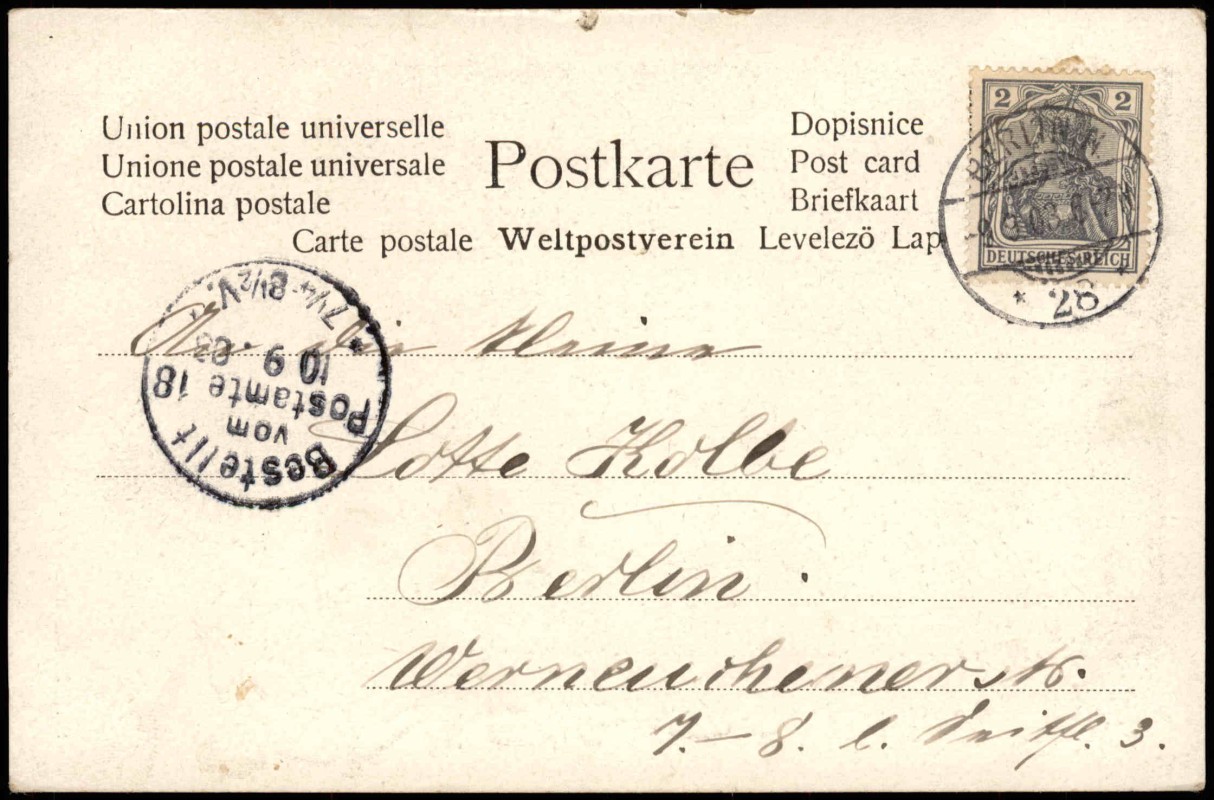 Union postale universelle
Unione postale universale
Cartolina postale
Postkarte
Dopisnice
Post card
Briefkaart
Carte postale Weltpostverein Levelezö Lap
2 2
DEUTSCHES REICH
BERLIN N
* 28 *
* 7¼-8½V. *
10 9 03
Bestellt
vom
Postamte 18
An die kleine
Lotte Kolbe
Berlin.
Werneuchenerstr.
7.-8. l. Seitfl. 3.